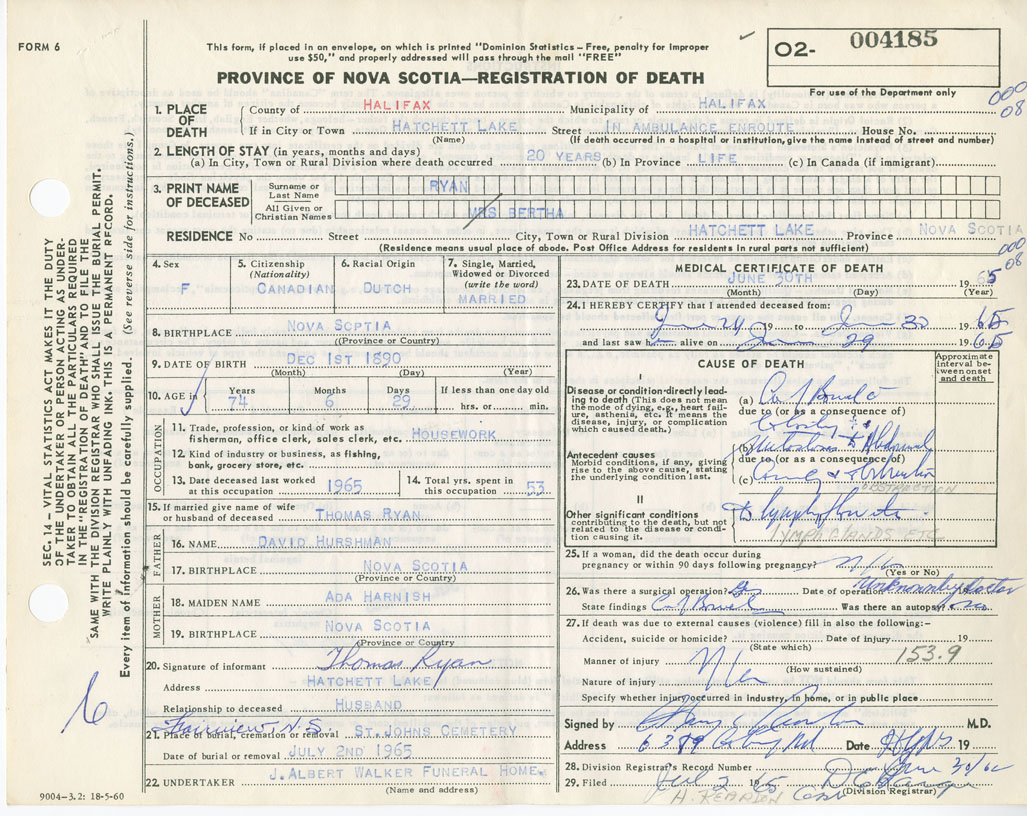 FORM 6
This form, if placed in an envelope, on which is printed "Dominion Statistics – Free, penalty for improper
use $50," and properly addressed will pass through the mail "FREE"
PROVINCE OF NOVA SCOTIA—REGISTRATION OF DEATH
O2- 004185
For use of the Department only
000
08
1. PLACE OF DEATH { County of HALIFAX Municipality of HALIFAX
If in City or Town HATCHETT LAKE Street IN AMBULANCE ENROUTE House No.
(Name) (If death occurred in a hospital or institution, give the name instead of street and number)
2. LENGTH OF STAY (in years, months and days)
(a) In City, Town or Rural Division where death occurred 20 YEARS (b) In Province LIFE (c) In Canada (if immigrant)
3. PRINT NAME OF DECEASED { Surname or Last Name RYAN
All Given or Christian Names MRS BERTHA
RESIDENCE No Street City, Town or Rural Division HATCHETT LAKE Province NOVA SCOTIA
(Residence means usual place of abode. Post Office Address for residents in rural parts not sufficient)
000
08
4. Sex
F
5. Citizenship
(Nationality)
CANADIAN
6. Racial Origin
DUTCH
7. Single, Married,
Widowed or Divorced
(write the word)
MARRIED
8. BIRTHPLACE NOVA SCPTIA
(Province or Country)
9. DATE OF BIRTH DEC 1ST 1890
(Month) (Day) (Year)
10. AGE in { Years Months Days If less than one day old
74 6 29 hrs. or min.
OCCUPATION
11. Trade, profession, or kind of work as
fisherman, office clerk, sales clerk, etc. HOUSEWORK
12. Kind of industry or business, as fishing,
bank, grocery store, etc.
13. Date deceased last worked
at this occupation 1965
14. Total yrs. spent in
this occupation 53
15. If married give name of wife
or husband of deceased THOMAS RYAN
FATHER
16. NAME DAVID HURSHMAN
17. BIRTHPLACE NOVA SCOTIA
(Province or Country)
MOTHER
18. MAIDEN NAME ADA HARNISH
19. BIRTHPLACE NOVA SCOTIA
(Province or Country)
20. Signature of informant Thomas Ryan
Address HATCHETT LAKE
Relationship to deceased HUSBAND
Fairview N.S
21. Place of burial, cremation or removal ST. JOHNS CEMETERY
Date of burial or removal JULY 2ND 1965
22. UNDERTAKER J. ALBERT WALKER FUNERAL HOME.
(Name and address)
MEDICAL CERTIFICATE OF DEATH
23. DATE OF DEATH JUNE 30TH 1965
(Month) (Day) (Year)
24. I HEREBY CERTIFY that I attended deceased from:
June 24 19 to June 30 1965
and last saw h alive on June 29 1965
CAUSE OF DEATH
Approximate
interval between onset
and death
I
Disease or condition directly leading
to death (This does not mean
the mode of dying, e.g., heart failure,
asthenia, etc. It means the
disease, injury, or complication
which caused death.)
(a) Ca of Bowel
due to (or as a consequence of)
Antecedent causes
Morbid conditions, if any, giving
rise to the above cause, stating
the underlying condition last.
(b) Abdominal
due to (or as a consequence of)
(c)
OBSTRUCTION
II
Other significant conditions
contributing to the death, but not
related to the disease or condition
causing it.
LYMPH GLANDS ETC
25. If a woman, did the death occur during
pregnancy or within 90 days following pregnancy?
(Yes or No)
26. Was there a surgical operation? Date of operation Unknown by doctor
State findings Ca of Bowel Was there an autopsy?
27. If death was due to external causes (violence) fill in also the following:-
Accident, suicide or homicide? Date of injury 19
(State which)
Manner of injury 153.9
(How sustained)
Nature of injury
Specify whether injury occurred in industry, in home, or in public place
Signed by M.D.
Address 6389 Date 19
28. Division Registrar's Record Number
29. Filed Jul 2 1965
(Division Registrar)
SEC. 14 – VITAL STATISTICS ACT MAKES IT THE DUTY
OF THE UNDERTAKER OR PERSON ACTING AS UNDER-
TAKER TO OBTAIN ALL THE PARTICULARS REQUIRED
IN THE "REGISTRATION OF DEATH" AND TO FILE THE
SAME WITH THE DIVISION REGISTRAR WHO SHALL ISSUE THE BURIAL PERMIT.
WRITE PLAINLY WITH UNFADING INK. THIS IS A PERMANENT RECORD.
Every item of information should be carefully supplied. (See reverse side for instructions.)
6
9004–3.2: 18-5-60